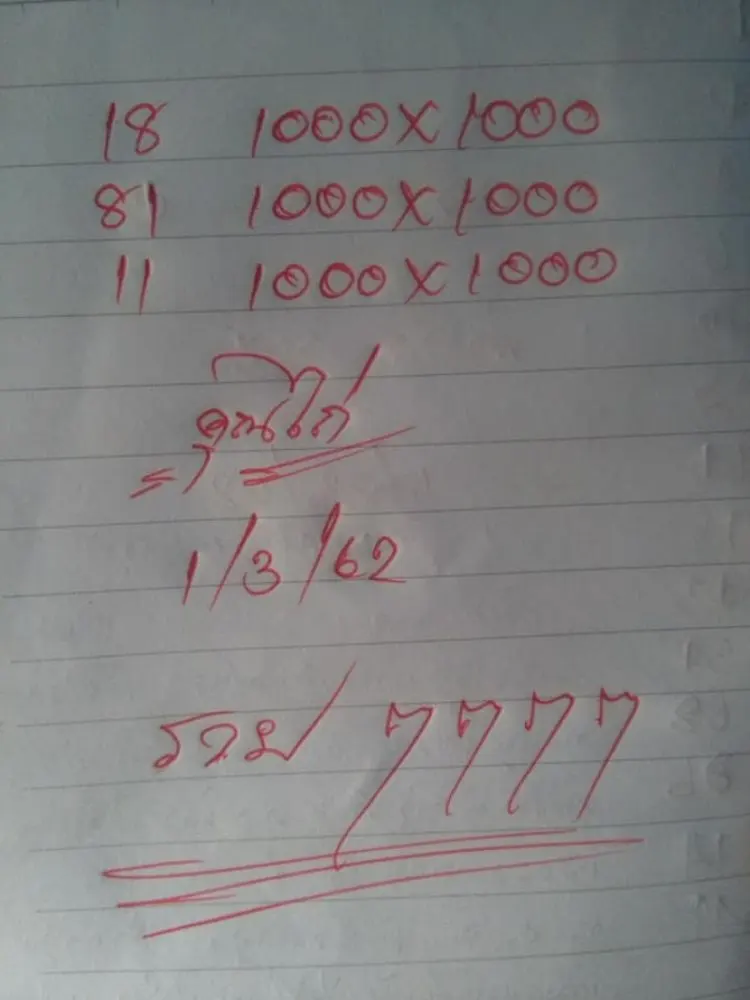 18 1000×1000
81 1000×1000
11 1000×1000
คุณไก่
1/3/62
รวย 7777